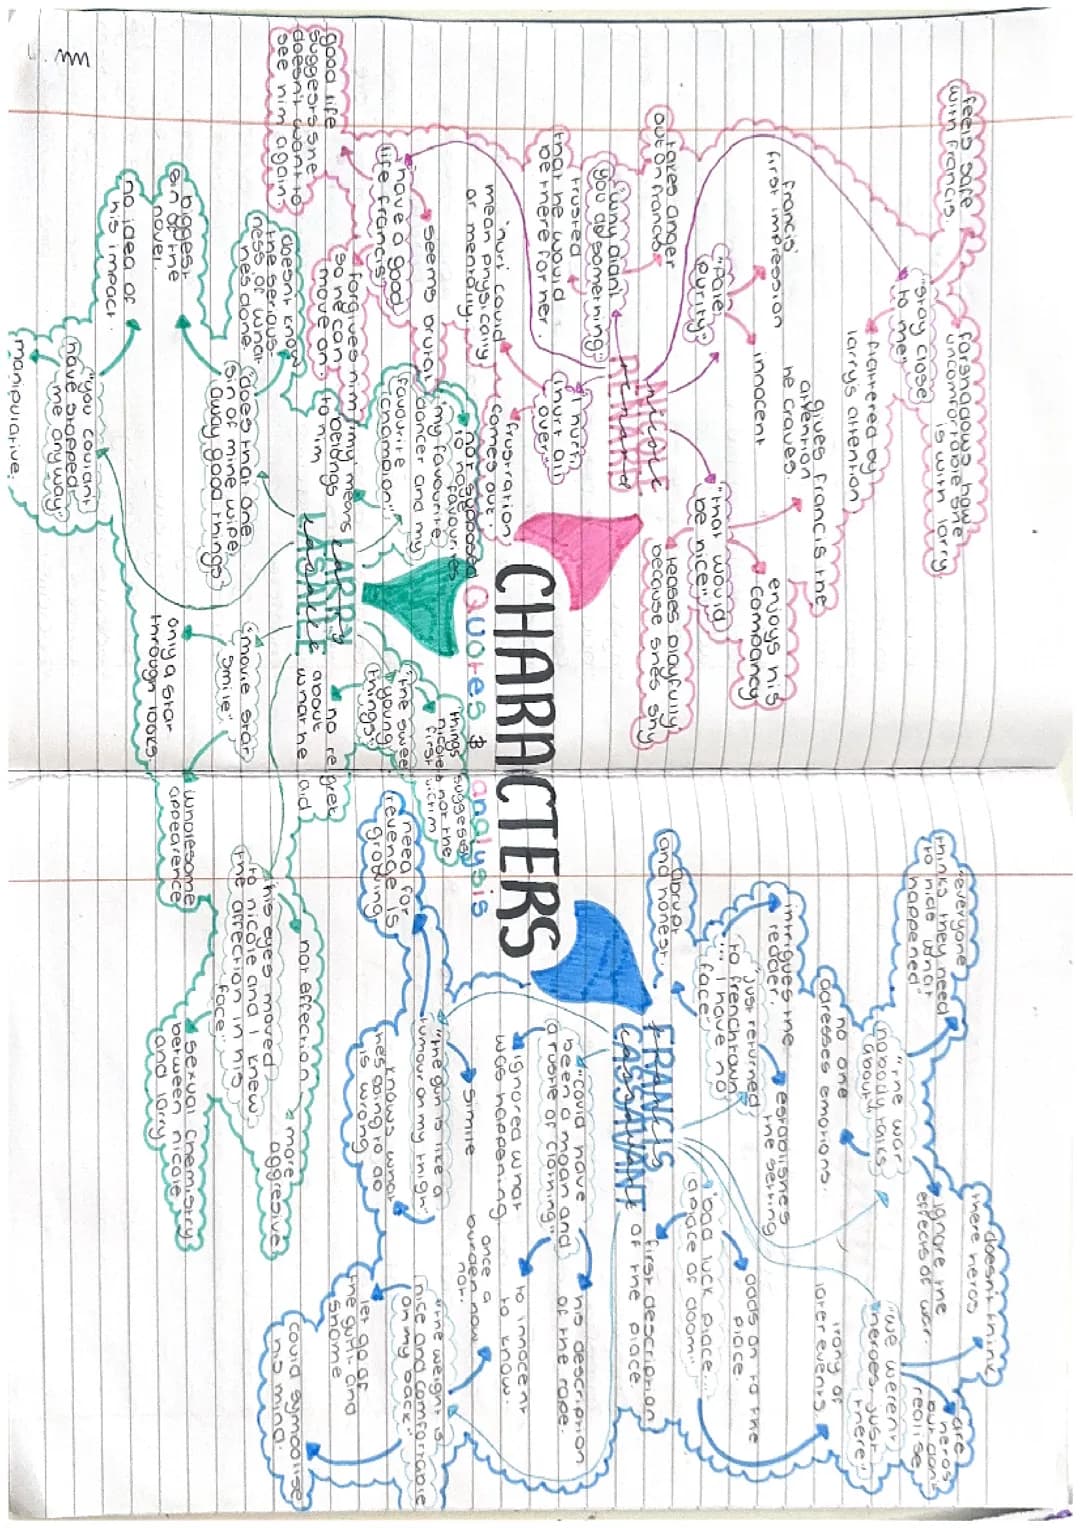 CHARACTERS
Quotes & analysis
nicole
renard
"stay close
to me"
feels safe
with francis.
forshadows how
uncomfortable she
is with larry.
flattered by
larry's attention
"pale
purity"
francis'
first impression
innocent
"that would
be nice"
gives francis the
attention
he craves.
enjoys his
company
teases playfully
because shes shy
"why didn't
you do something"
takes anger
out on francis
trusted
that he would
be there for her.
"I hurt
hurt all
over"
'hurt' could
mean physically
or mentally.
frustration
comes out.
"have a good
life francis"
seems brutal
good life
suggests she
doesn't want to
see him again.
forgives him
so he can
move on.
LARRY
LASALLE
"my favourite
dancer and my
favourite
cinamaion"
not supposed
to have
favourites
'my' means
belongs
to him
"does that one
sin of mine wipe
away good things"
doesnt know
the serious-
ness of what
hes done.
biggest
sin of the
novel.
"you couldnt
have stopped
me anyway"
no idea of
his impact.
manipulative.
"movie star
smile"
only a star
through looks.
wholesome
appearence
"the sweet
young
things"
'things' suggests
nicole's not the
first victim
no regret
about
what he did
"his eyes moved
to nicole and I knew
the affection in his
face"
not effection
more
aggresive
sexual chemistry
between nicole
and larry
FRANCIS
CASSAVANT
"just returned
to frenchtown
... I have no
face"
abrupt
and honest.
intrigues the
reader.
establishes
the setting
"the war
nobody talks
about"
"everyone
thinks they need
to hide what
happened"
no one
adresses emotions.
ignore the
effects of war.
"we werent
heroes, just
there"
doesn't think
there heros
are
heros
but don't
realise
irony of
later events.
"bad luck place...
a place of doom"
first description
of the place.
adds on to the
place.
"could have
been a moan and
a rushe of clothing"
ignored what
was happening.
to innocent
to know.
his description
of the rape.
"the gun is like a
tumour on my thigh"
need for
revenge is
growing
simile
knows what
hes going to do
is wrong
"the weight is
nice and comfortable
on my back"
once a
burden now
not.
let go of
the guilt and
shame
could symbolise
his mind.